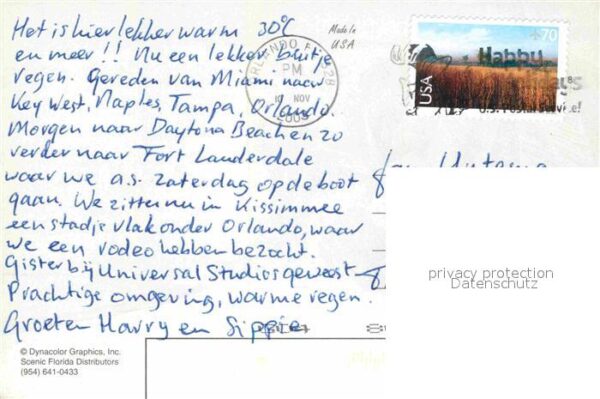 Het is hier lekker warm 30°C
en meer!! Nu een lekker buitje
regen. Gereden van Miami naar
Key West, Naples, Tampa, Orlando.
Morgen naar Daytona Beach en zo
verder naar Fort Lauderdale
waar we a.s. zaterdag op de boot
gaan. We zitten nu in Kissimmee
een stadje vlak onder Orlando, waar
we een rodeo hebben bezocht.
Gister bij Universal Studios geweest
Prachtige omgeving, warme regen.
Groeten Harry en Sippie
Made in
USA
ORLANDO FL 328
PM
NOV
2003
70
USA
Happy
U.S. Postal Service!
Fam
privacy protection
Datenschutz
© Dynacolor Graphics, Inc.
Scenic Florida Distributors
(954) 641-0433